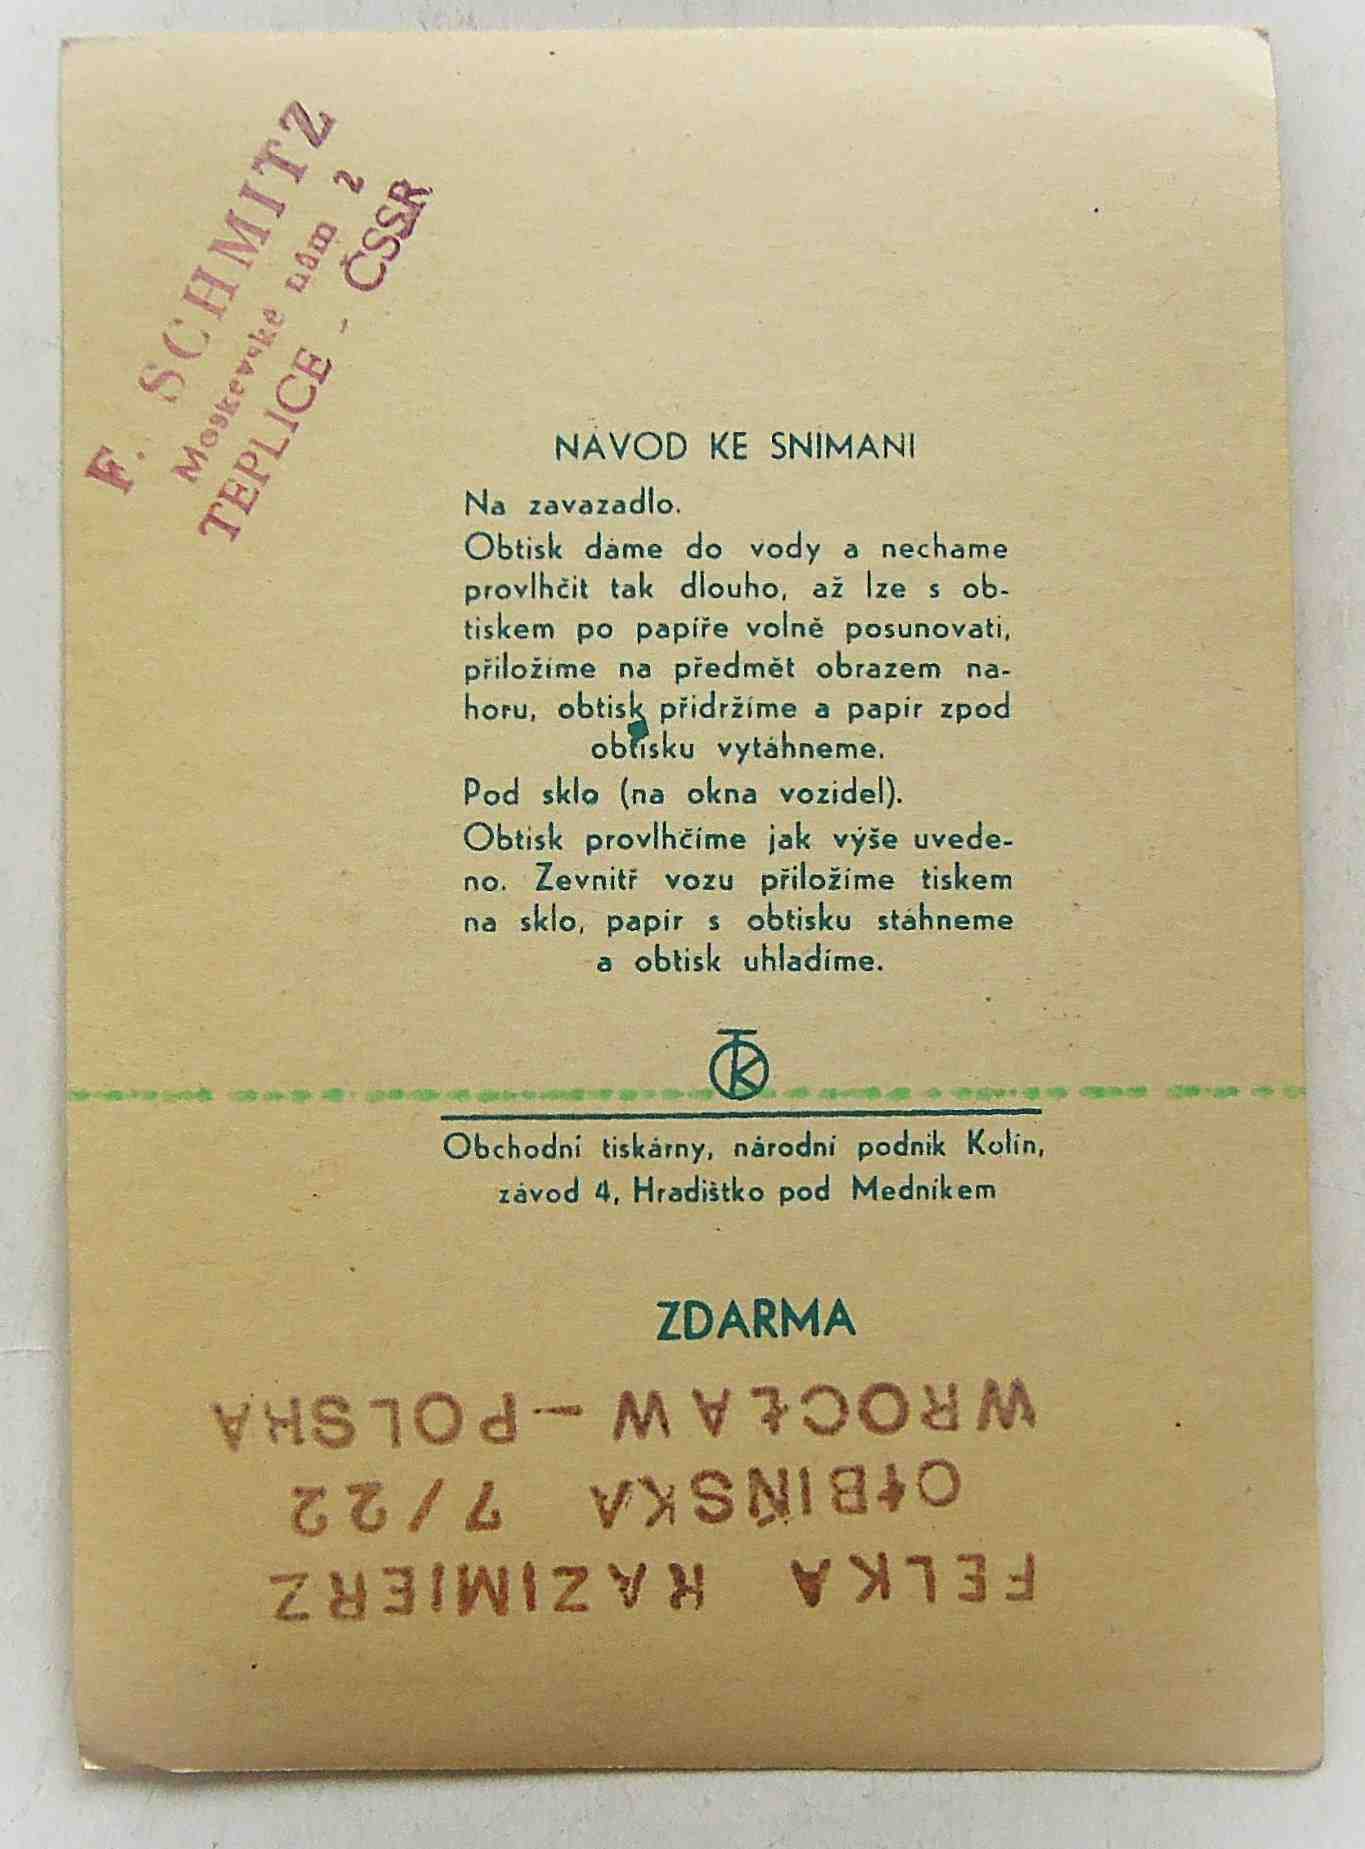 F. SCHMITZ
Moskevské nám 2
TEPLICE - ČSSR
NÁVOD KE SNÍMÁNÍ
Na zavazadlo.
Obtisk dáme do vody a necháme
provlhčit tak dlouho, až lze s ob-
tiskem po papíře volně posunovati,
přiložíme na předmět obrazem na-
horu, obtisk přidržíme a papír zpod
obtisku vytáhneme.
Pod sklo (na okna vozidel).
Obtisk provlhčíme jak výše uvede-
no. Zevnitř vozu přiložíme tiskem
na sklo, papír s obtisku stáhneme
a obtisk uhladíme.
TK
Obchodní tiskárny, národní podnik Kolín,
závod 4, Hradištko pod Medníkem
ZDARMA
FELKA KAZIMIERZ
OŁBIŃSKA 7/22
WROCŁAW - POLSKA